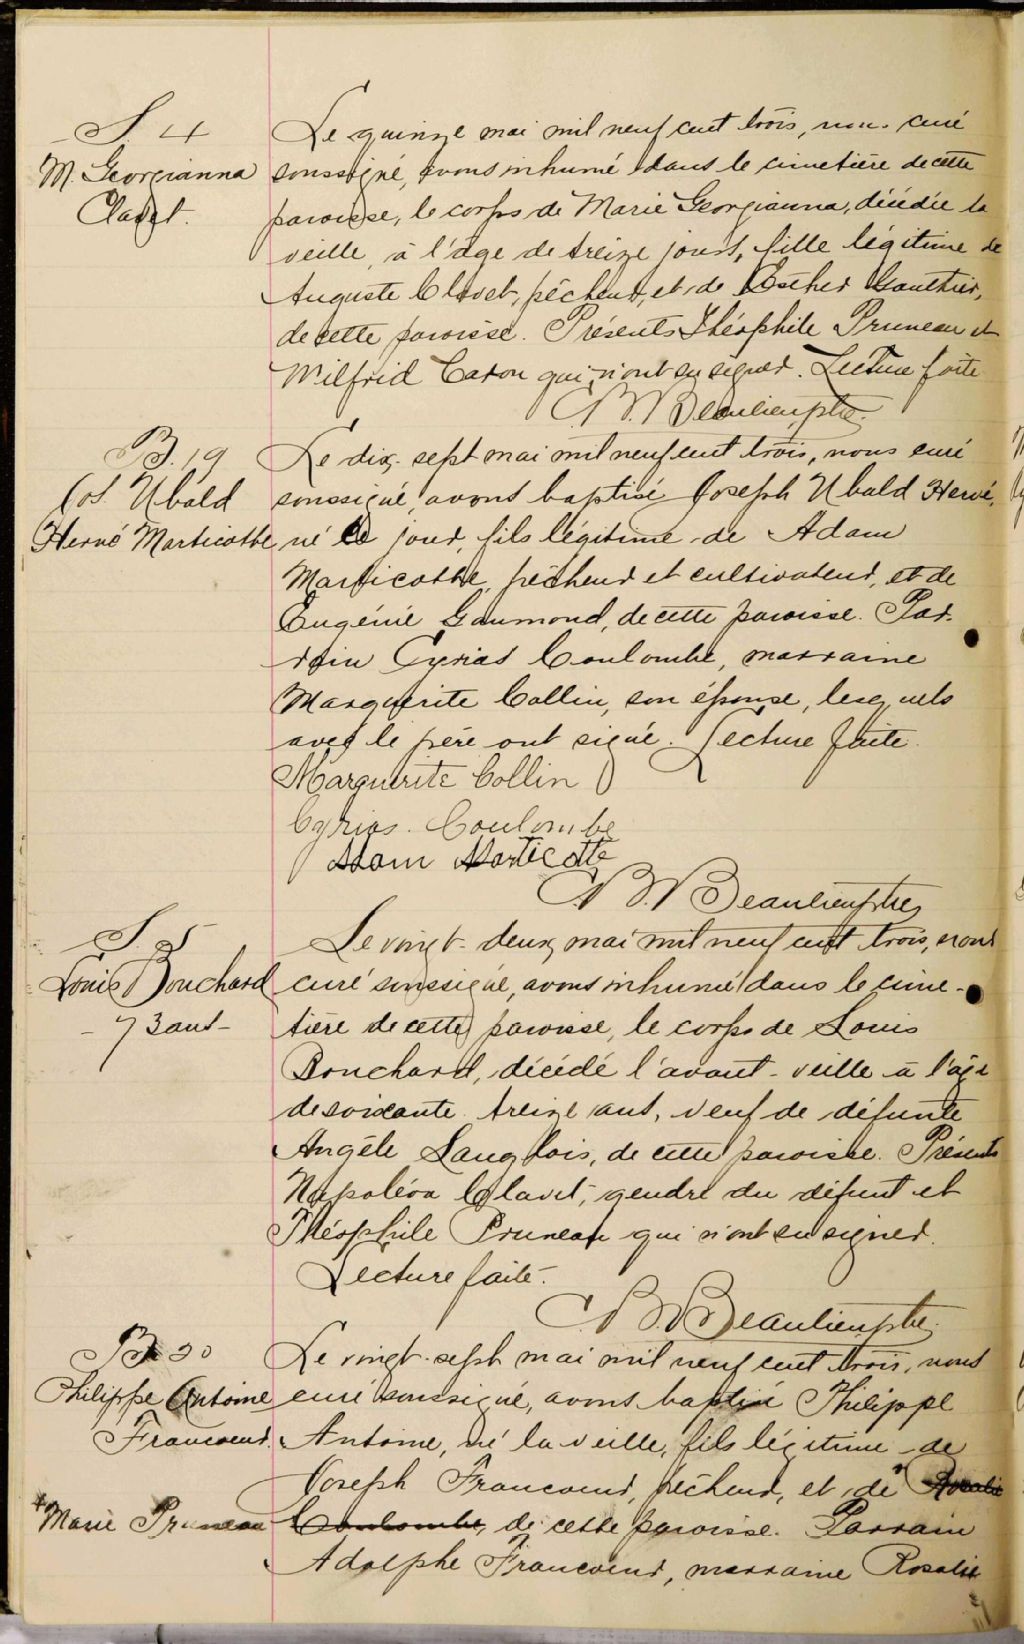 S. 4
M. Georgianna
Clavet.
Le quinze mai mil neuf cent trois, nous curé
soussigné, avons inhumé dans le cimetière de cette
paroisse, le corps de Marie Georgianna, décédée la
veille, à l'âge de treize jours, fille légitime de
Auguste Clavet, pêcheur, et de Esther Gauthier,
de cette paroisse. Présents Théophile Pruneau et
Wilfrid Caron qui n'ont su signer. Lecture faite
B. Beaulieu ptre.
B. 19
Jos. Ubald
Hervé Marticotte
Le dix-sept mai mil neuf cent trois, nous curé
soussigné, avons baptisé Joseph Ubald Hervé,
né ce jour, fils légitime de Adam
Marticotte, pêcheur et cultivateur, et de
Eugénie Gaumond, de cette paroisse. Par-
rain Cyrias Coulombe, marraine
Marguerite Collin, son épouse, lesquels
avec le père ont signé. Lecture faite.
Marguerite Collin
Cyrias. Coulombe
Adam Marticotte
B. Beaulieu ptre
S. 5
Louis Bouchard
- 73 ans -
Le vingt-deux mai mil neuf cent trois, nous
curé soussigné, avons inhumé dans le cime-
tière de cette paroisse, le corps de Louis
Bouchard, décédé l'avant-veille à l'âge
de soixante-treize ans, veuf de défunte
Angèle Langlois, de cette paroisse. Présents
Napoléon Clavet, gendre du défunt et
Théophile Pruneau qui n'ont su signer.
Lecture faite.
B. Beaulieu ptre.
B. 20
Philippe Antoine
Francoeur.
Le vingt-sept mai mil neuf cent trois, nous
curé soussigné, avons baptisé Philippe
Antoine, né la veille, fils légitime de
Joseph Francoeur, pêcheur, et de + Rosalie
+ Marie Pruneau
Coulombe, de cette paroisse. Parrain
Adolphe Francoeur, marraine Rosalie